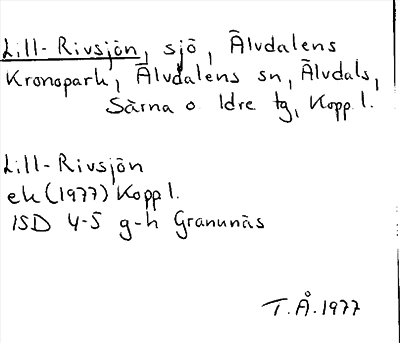 Lill-Rivsjön, sjö, Älvdalens
Kronopark, Älvdalens sn, Älvdals,
Särna o Idre tg, Kopp l.
Lill-Rivsjön
ek (1977) Kopp l.
15D 4-5 g-h Granunäs
T.Å. 1977